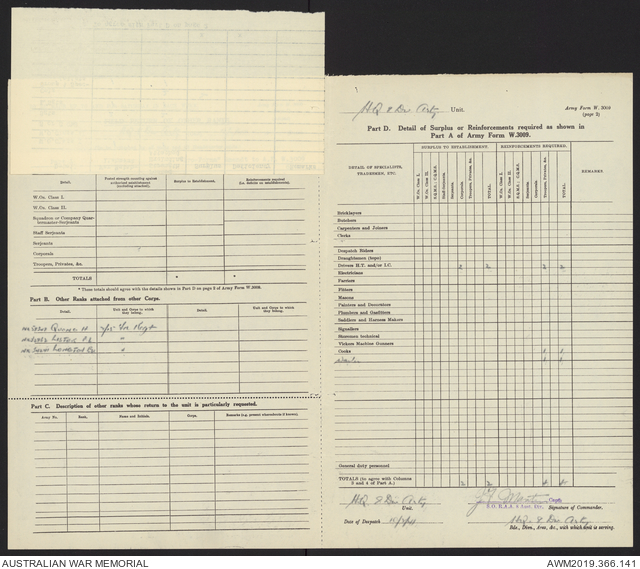 HQ 8 Div Arty Unit.
Army Form W. 3009
(page 2)
Part D. Detail of Surplus or Reinforcements required as shown in
Part A of Army Form W.3009.
SURPLUS TO ESTABLISHMENT.
REINFORCEMENTS REQUIRED.
DETAIL OF SPECIALISTS,
TRADESMEN, ETC.
W.Os. Class I.
W.Os. Class II.
S.Q.M.S.; C.Q.M.S.
Staff-Serjeants
Serjeants
Corporals
Troopers, Privates, &c.
TOTAL
W.Os. Class I.
W.Os. Class II.
S.Q.M.S.; C.Q.M.S.
Serjeants
Corporals
Troopers, Privates, &c.
TOTAL.
REMARKS.
Bricklayers
Butchers
Carpenters and Joiners
Clerks
Despatch Riders
Draughtsmen (topo)
Drivers H.T. and/or I.C. 2 2 2 2
Electricians
Farriers
Fitters
Masons
Painters and Decorators
Plumbers and Gasfitters
Saddlers and Harness Makers
Signallers
Storemen technical
Vickers Machine Gunners
Cooks 1 1
1 1
General duty personnel
TOTALS (to agree with Columns
3 and 4 of Part A.) 2 2 4 4
HQ 8 Div Arty
Unit.
Capt.
S.O. R.A.A. 8 Aust. Div.
Signature of Commander.
Date of Despatch
HQ. 8 Div Arty
Bde., Divn., Area, &c., with which unit is serving.
Detail.
Posted strength counting against
authorized establishments
(including attached).
Surplus to Establishment.
Reinforcements required
(i.e. deficits on establishments).
W.Os. Class I.
W.Os. Class II.
Squadron or Company Quar-
termaster-Serjeants
Staff Serjeants
Serjeants
Corporals
Troopers, Privates, &c.
TOTALS * *
* These totals should agree with the details shown in Part D on page 2 of Army Form W.3009.
Part B. Other Ranks attached from other Corps.
Detail.
Unit and Corps to which
they belong.
Detail.
Unit and Corps to which
they belong.
Part C. Description of other ranks whose return to the unit is particularly requested.
Army No.
Rank.
Name and Initials.
Corps.
Remarks (e.g., present whereabouts if known).
AUSTRALIAN WAR MEMORIAL
AWM2019.366.141